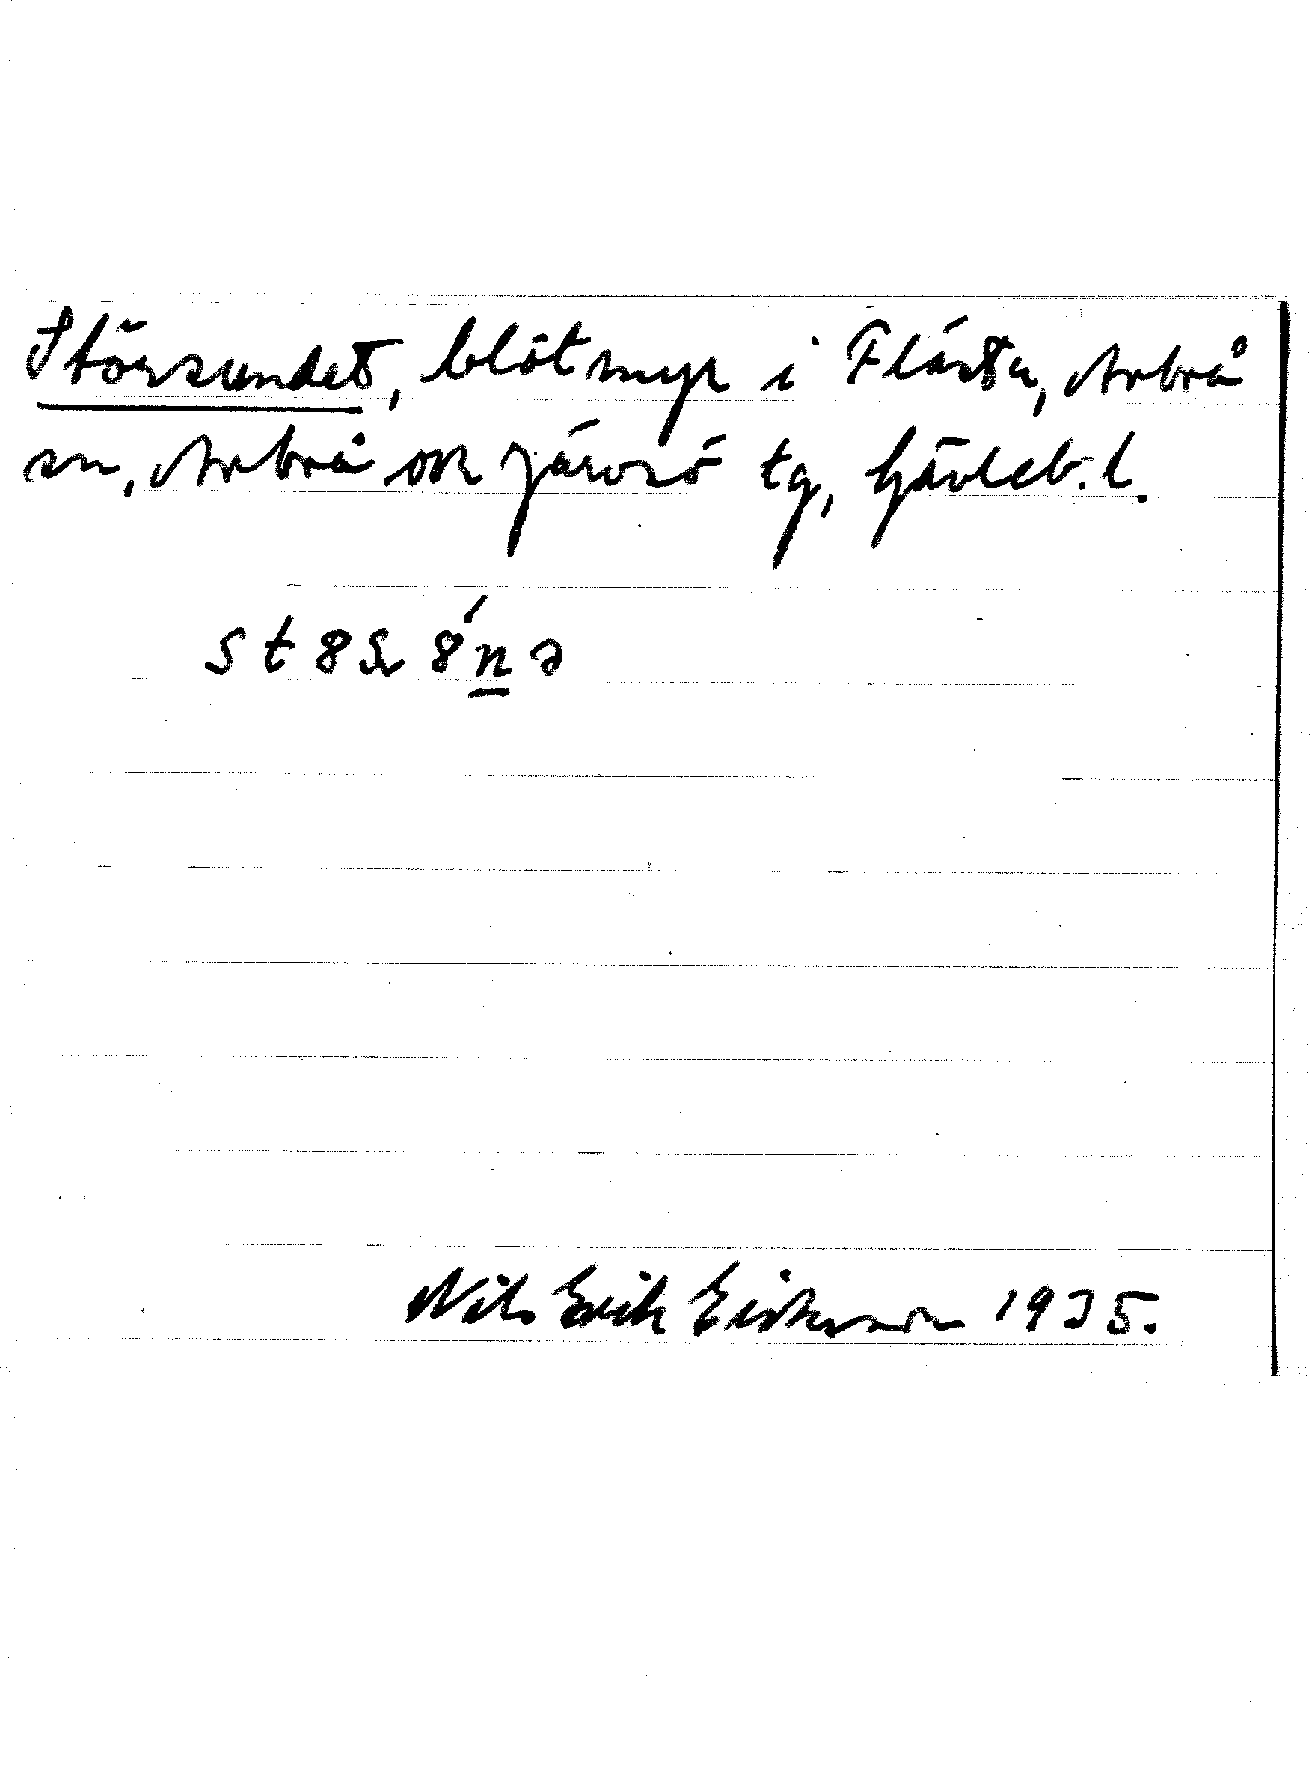 Störsundet, blöt myr i Flästa, Arbrå
sn, Arbrå ock Järvsö tg, Gävleb. l.
Nils Erik Eriksson 1935.